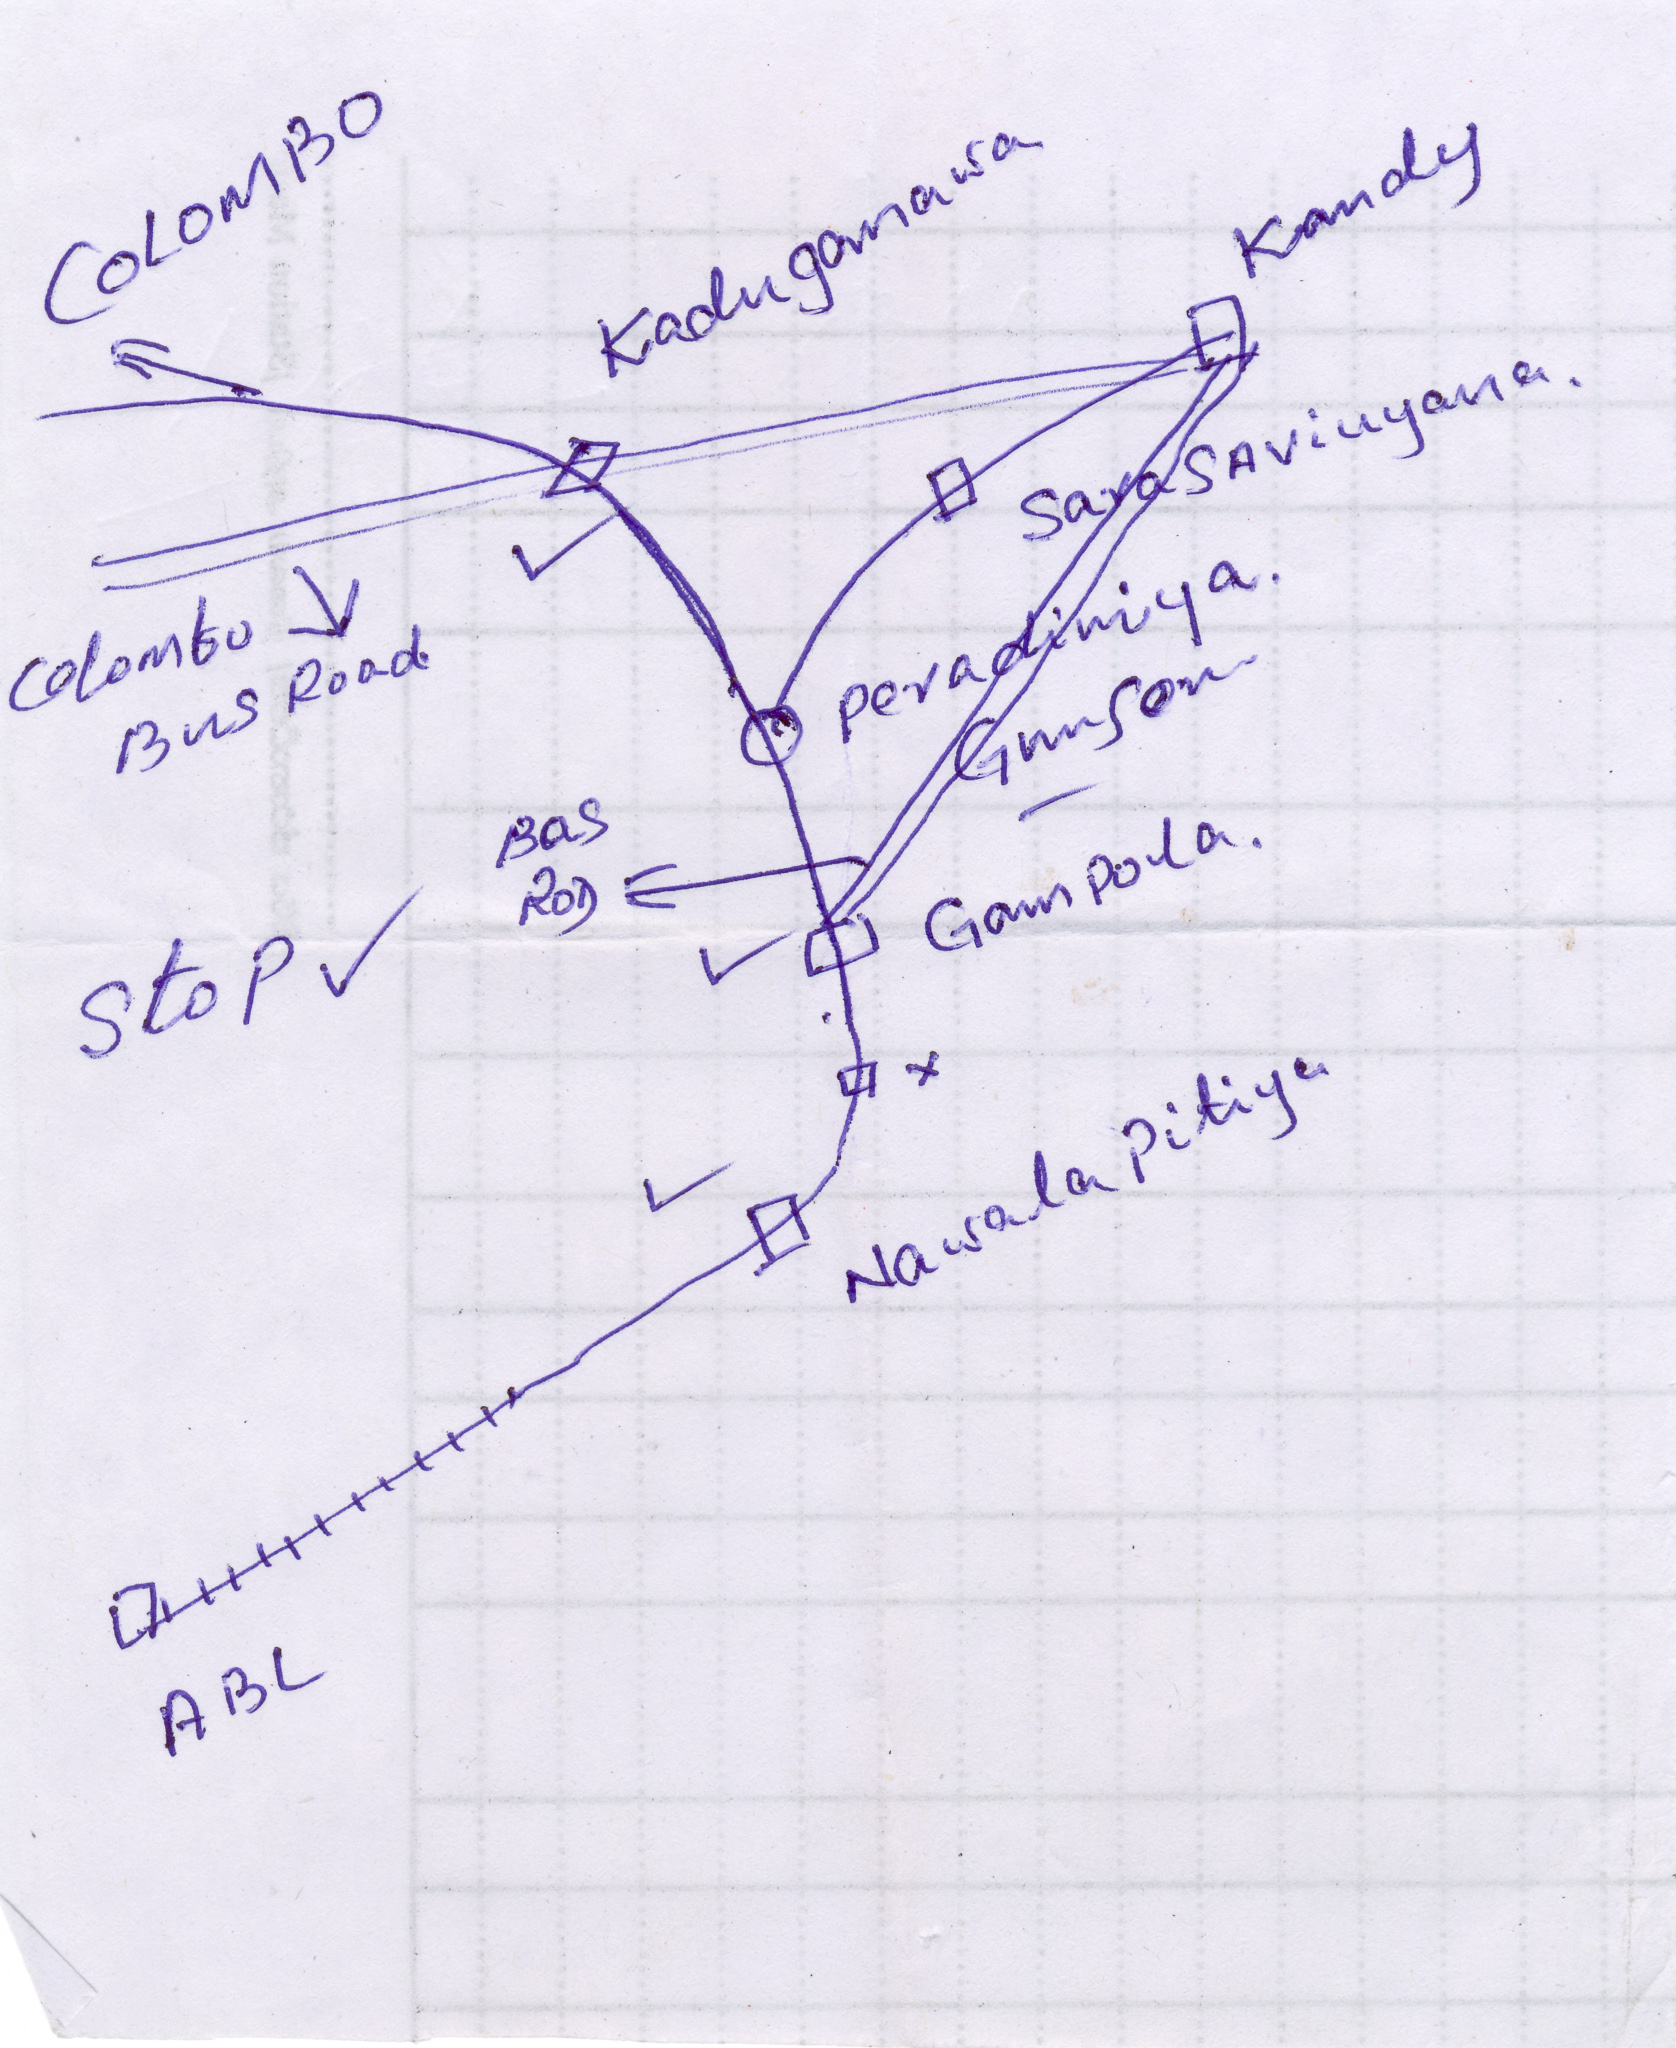 COLOMBO
Kadugannawa
Kandy
SaraSAviuyana.
Colombo
Bus Road
Peradiniya.
BaS
ROD
Gampola.
Stop ✓
x
Nawala Pitiya
ABL